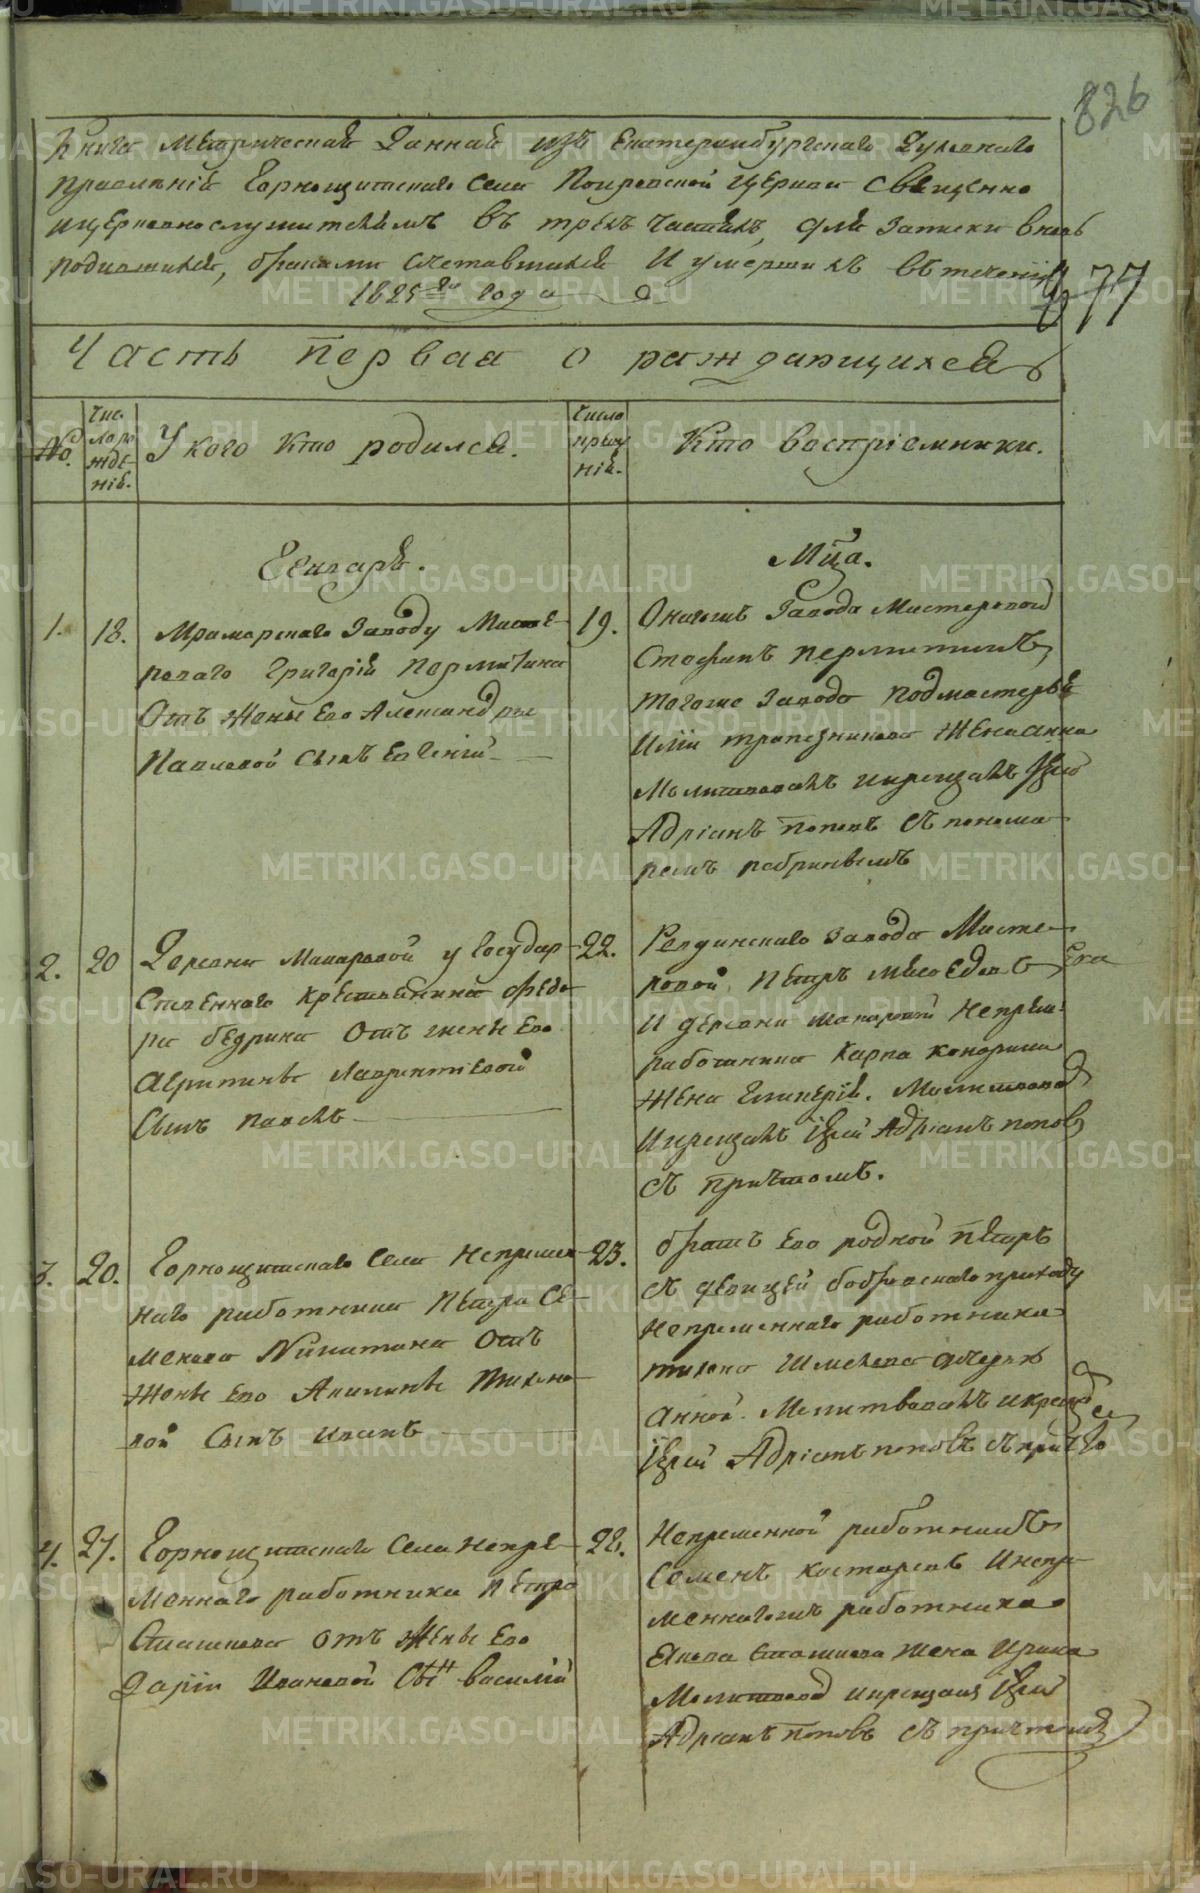 826
Книга Метрическая Данная изъ Екатеринбургскаго Духовнаго
правленiя Горнощитскаго села Покровской Церкви Священно
ицерковнослужителямъ въ трехъ частяхъ, для записки вновь
родившихся, браками сочетавшихся И умершихъ въ теченiи
1825го года
77
Часть первая о раждающихся
№
Чис. ло рожденiя.
У кого кто родился.
Число крещенiя.
Кто воспрiемники.
Генваря.
Мца.
1.
18.
Мраморскаго Заводу Масте-
роваго Григорiя Пермитина
Отъ Жены Его Александры
Павловой Сынъ Евгенiй
19.
Онагожъ Завода Мастеровой
Стефанъ Пермитинъ,
тогоже Завода подмастерья
Илiи трапезникова Жена анна
Молитвовалъ икрещалъ Iерей
Адрiанъ поповъ Съ понома-
ремъ
2.
20
Деревни Макаровой у Государ-
ственнаго крестьянина Федо-
ра бедрина Отъ жены Его
Агрипины Лаврентiевой
Сынъ павелъ
22.
Ревдинскаго завода Масте-
ровой Петръ Мясоедовъ
И деревни макаровой Непрем:
работника карпа
Жена Гликерiя. Молитвовал
Икрещалъ Iерей Адрiанъ попов
Съ причтомъ.
3.
20.
Горнощитскаго Села Непремен-
наго работника Петра Се-
менова Никитина Отъ
Жены Его Акилины Тихоно-
вой Сынъ иванъ
23.
братъ Его родной петръ
Съ девицей бобровскаго приходу
Непременнаго работника
тихона Шмелева дочерью
анной. Молитвовалъ икрещал
Iерей Адрiанъ поповъ Съ
4.
27.
Горнощитскаго Села Непре-
Меннаго работника петра
Сташкова отъ Жены Его
Дарiи Ивановой Сын василiй
28.
Непременной работникъ
Семенъ костаревъ Инепре-
меннагожъ работника
Якова Сташкова жена Ирина
Молитвовал икрещал Iерей
Адрiанъ поповъ Съ причтомъ
METRIKI.GASO-URAL.RU